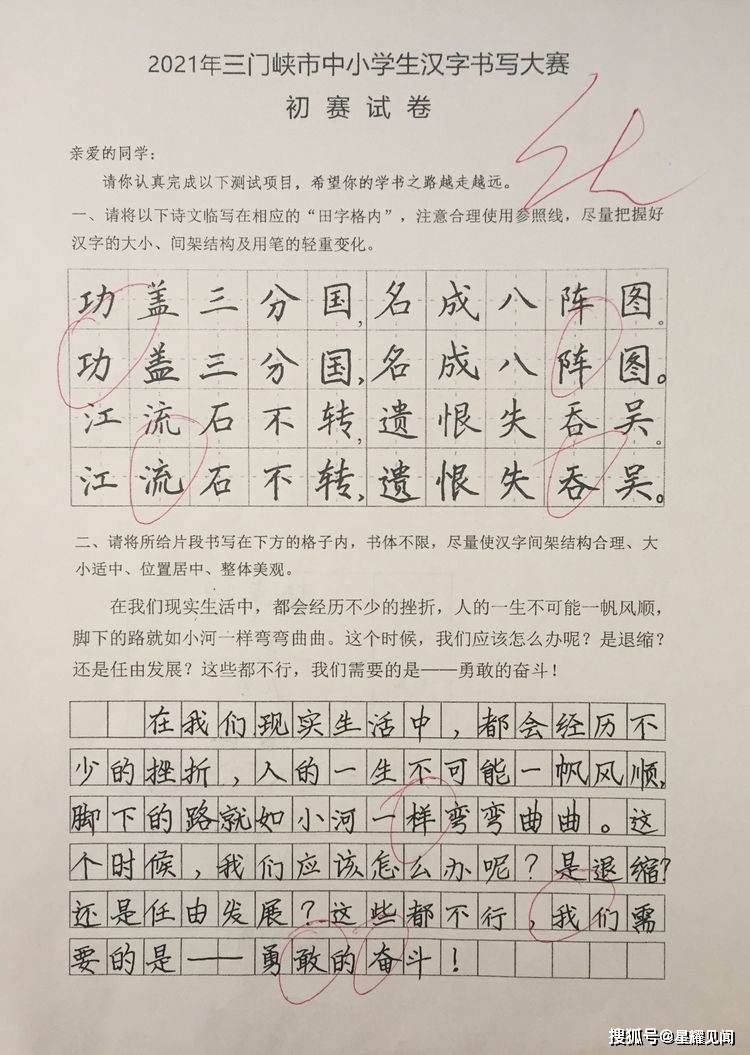 2021年三门峡市中小学生汉字书写大赛
初赛试卷
亲爱的同学：
请你认真完成以下测试项目，希望你的学书之路越走越远。
一、请将以下诗文临写在相应的“田字格内”，注意合理使用参照线，尽量把握好
汉字的大小、间架结构及用笔的轻重变化。
功盖三分国，名成八阵图。
功盖三分国，名成八阵图。
江流石不转，遗恨失吞吴。
江流石不转，遗恨失吞吴。
二、请将所给片段书写在下方的格子内，书体不限，尽量使汉字间架结构合理、大
小适中、位置居中、整体美观。
在我们现实生活中，都会经历不少的挫折，人的一生不可能一帆风顺，
脚下的路就如小河一样弯弯曲曲。这个时候，我们应该怎么办呢？是退缩？
还是任由发展？这些都不行，我们需要的是——勇敢的奋斗！
在我们现实生活中，都会经历不
少的挫折，人的一生不可能一帆风顺，
脚下的路就如小河一样弯弯曲曲。这
个时候，我们应该怎么办呢？是退缩？
还是任由发展？这些都不行，我们需
要的是——勇敢的奋斗！
搜狐号@星耀见闻